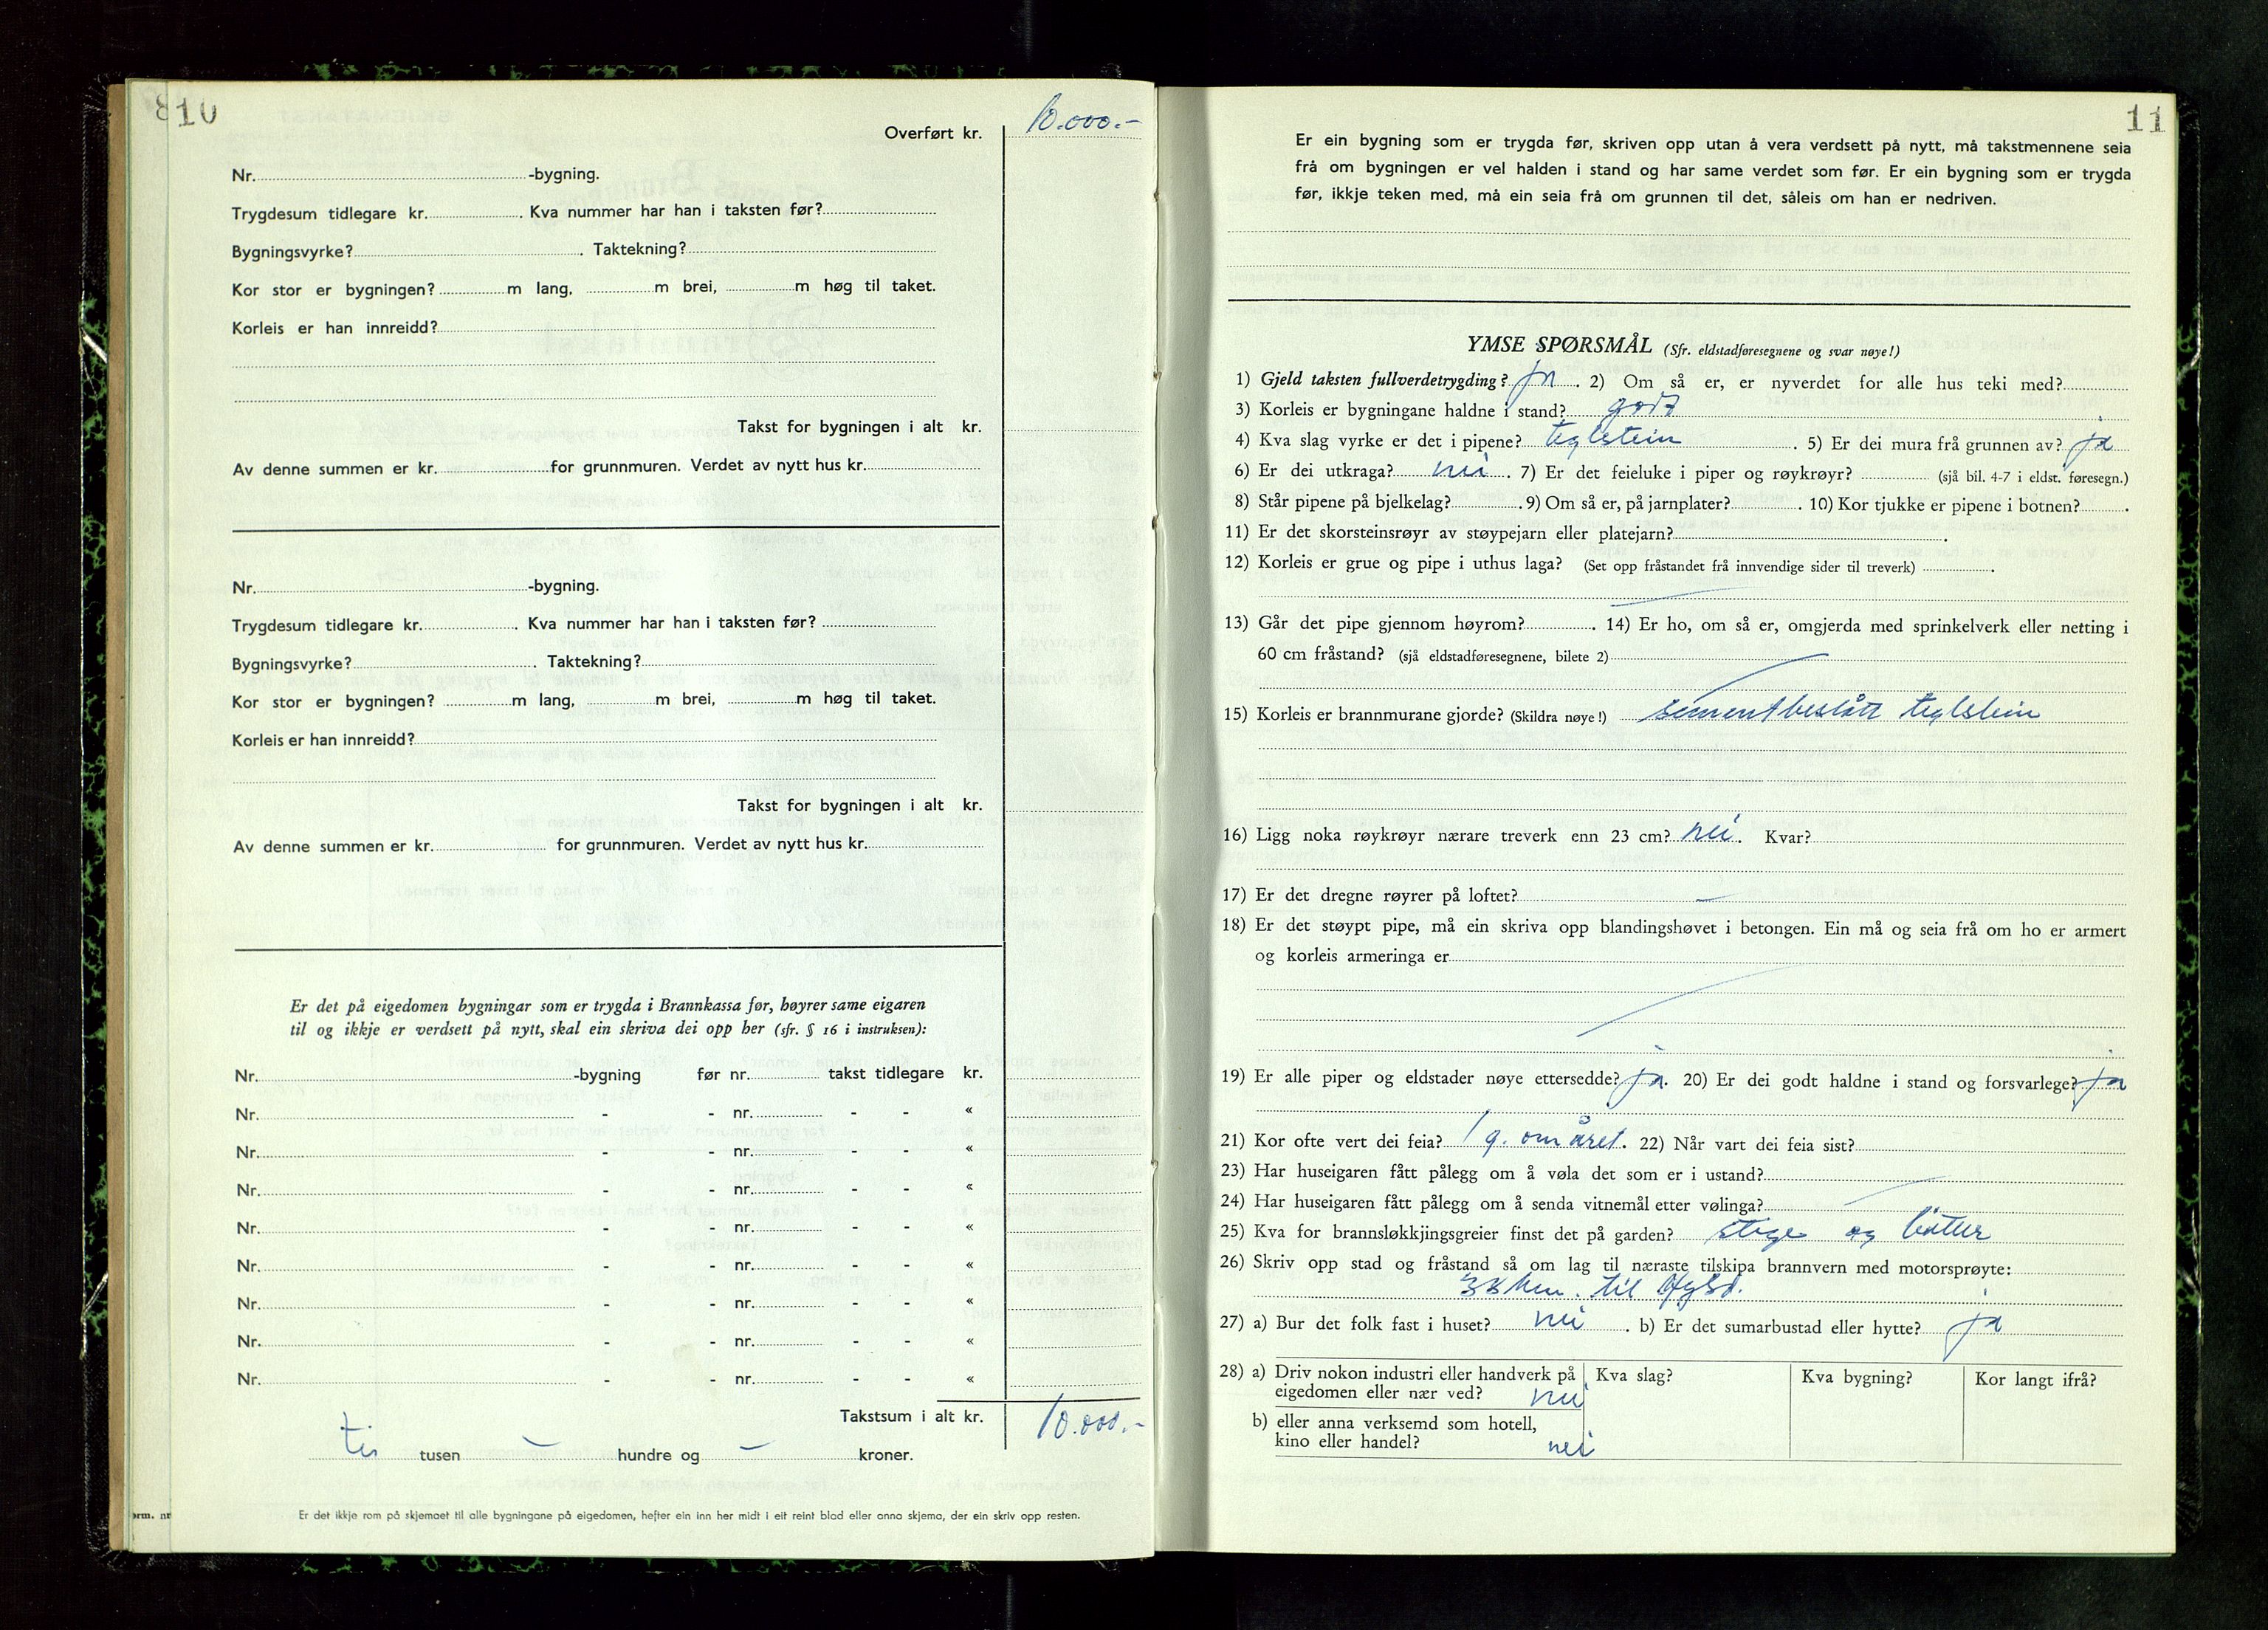 10
Overført kr. 10.000.-
Nr. -bygning.
Trygdesum tidlegare kr. . Kva nummer har han i taksten før?
Bygningsvyrke? . Taktekning?
Kor stor er bygningen? m lang, m brei, m høg til taket.
Korleis er han innreidd?
Takst for bygningen i alt kr.
Av denne summen er kr. for grunnmuren. Verdet av nytt hus kr.
Nr. -bygning.
Trygdesum tidlegare kr. . Kva nummer har han i taksten før?
Bygningsvyrke? . Taktekning?
Kor stor er bygningen? m lang, m brei, m høg til taket.
Korleis er han innreidd?
Takst for bygningen i alt kr.
Av denne summen er kr. for grunnmuren. Verdet av nytt hus kr.
Er det på eigedomen bygningar som er trygda i Brannkassa før, høyrer same eigaren
til og ikkje er verdsett på nytt, skal ein skriva dei opp her (sfr. § 16 i instruksen):
Nr. -bygning før nr. takst tidlegare kr.
Nr. - - nr. - - «
Nr. - - nr. - - «
Nr. - - nr. - - «
Nr. - - nr. - - «
Nr. - - nr. - - «
Nr. - - nr. - - «
Nr. - - nr. - - «
Nr. - - nr. - - «
Takstsum i alt kr. 10.000.-
ti tusen - hundre og - kroner.
Er det ikkje rom på skjemaet til alle bygningane på eigedomen, hefter ein inn her midt i eit reint blad eller anna skjema, der ein skriv opp resten.
11
Er ein bygning som er trygda før, skriven opp utan å vera verdsett på nytt, må takstmennene seia
frå om bygningen er vel halden i stand og har same verdet som før. Er ein bygning som er trygda
før, ikkje teken med, må ein seia frå om grunnen til det, såleis om han er nedriven.
YMSE SPØRSMÅL (Sfr. eldstadføresegnene og svar nøye!)
1) Gjeld taksten fullverdetrygding? ja . 2) Om så er, er nyverdet for alle hus teki med?
3) Korleis er bygningane haldne i stand? godt
4) Kva slag vyrke er det i pipene? teglstein . 5) Er dei mura frå grunnen av? ja
6) Er dei utkraga? nei . 7) Er det feieluke i piper og røykrøyr? (sjå bil. 4-7 i eldst. føresegn.)
8) Står pipene på bjelkelag? . 9) Om så er, på jarnplater? . 10) Kor tjukke er pipene i botnen? .
11) Er det skorsteinsrøyr av støypejarn eller platejarn? .
12) Korleis er grue og pipe i uthus laga? (Set opp fråstandet frå innvendige sider til treverk) .
13) Går det pipe gjennom høyrom? . 14) Er ho, om så er, omgjerda med sprinkelverk eller netting i
60 cm fråstand? (sjå eldstadføresegnene, bilete 2)
15) Korleis er brannmurane gjorde? (Skildra nøye!) sementbeslått teglstein
16) Ligg noka røykrøyr nærare treverk enn 23 cm? nei. Kvar?
17) Er det dregne røyrer på loftet? -
18) Er det støypt pipe, må ein skriva opp blandingshøvet i betongen. Ein må og seia frå om ho er armert
og korleis armeringa er
19) Er alle piper og eldstader nøye ettersedde? ja. 20) Er dei godt haldne i stand og forsvarlege? ja
21) Kor ofte vert dei feia? 1 g. om året. 22) Når vart dei feia sist?
23) Har huseigaren fått pålegg om å vøla det som er i ustand?
24) Har huseigaren fått pålegg om å senda vitnemål etter vølinga?
25) Kva for brannsløkkjingsgreier finst det på garden? stige og bøtter
26) Skriv opp stad og fråstand så om lag til næraste tilskipa brannvern med motorsprøyte:
km. til
27) a) Bur det folk fast i huset? nei . b) Er det sumarbustad eller hytte? ja
28) a) Driv nokon industri eller handverk på Kva slag? Kva bygning? Kor langt ifrå?
eigedomen eller nær ved? nei
b) eller anna verksemd som hotell,
kino eller handel? nei